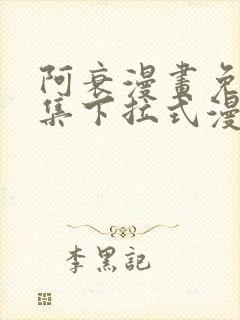 阿衰漫畫免
集下拉式漫
李黑記